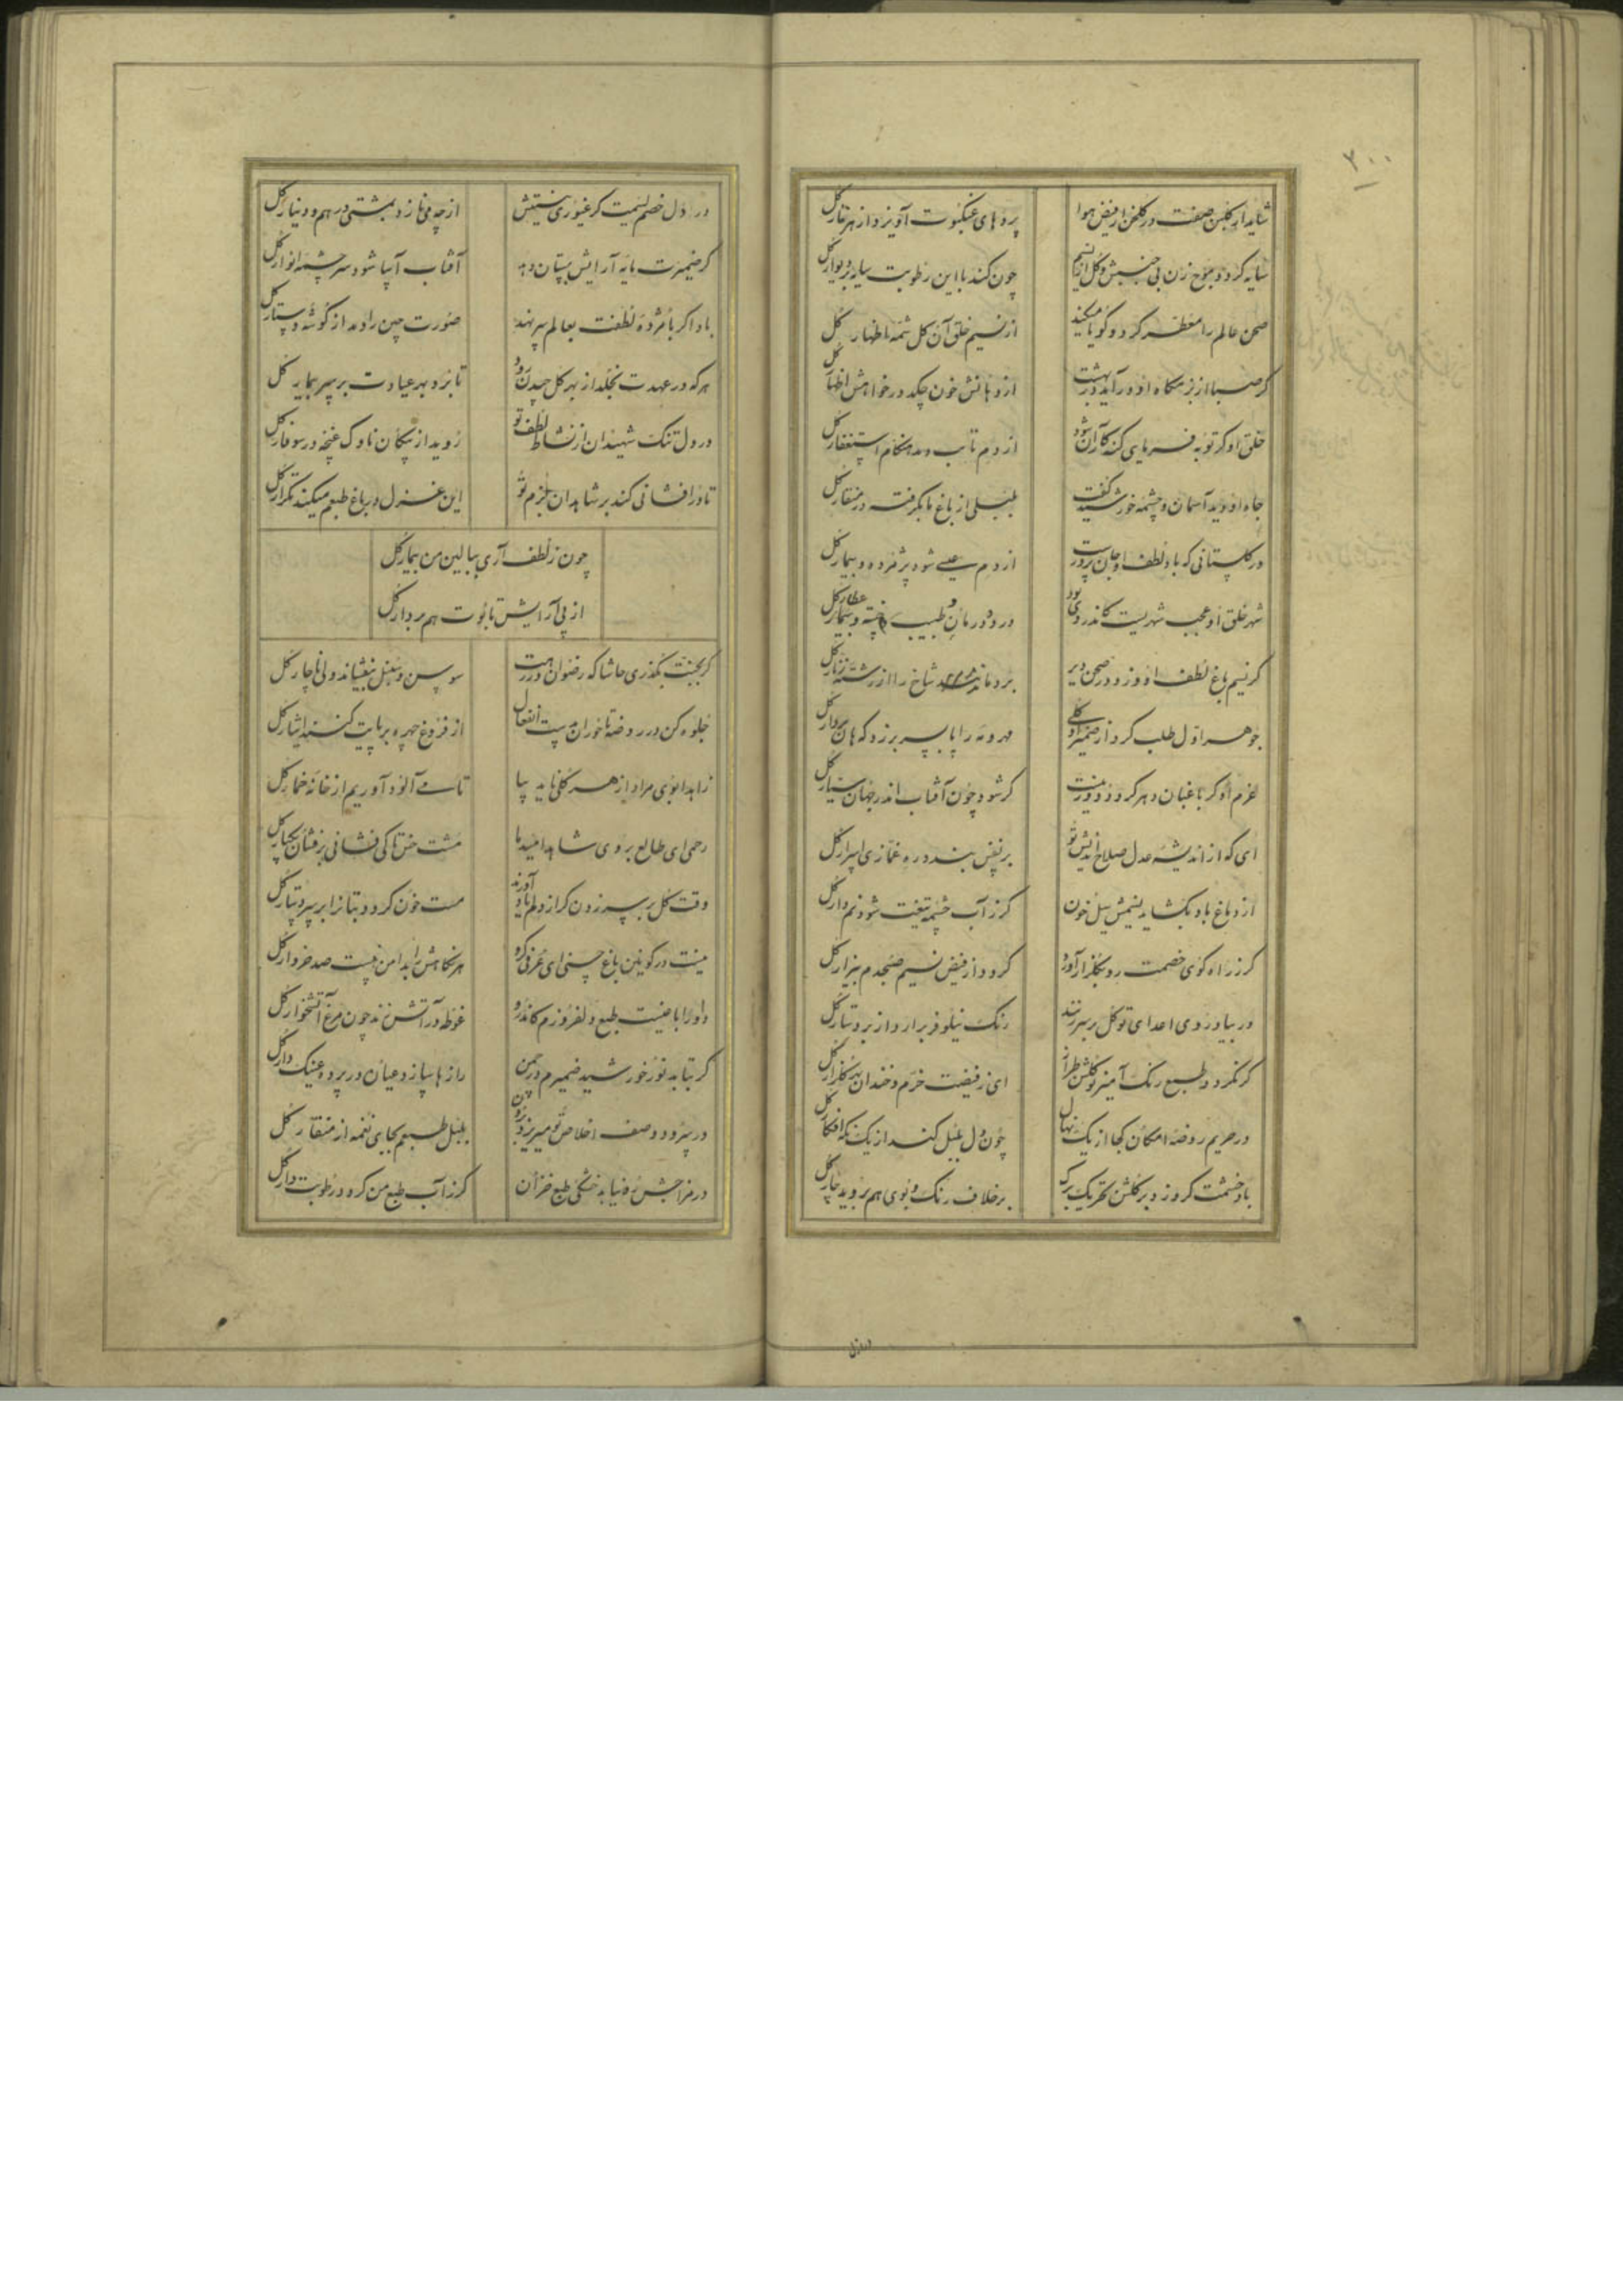 ۳۰۰
شاید ار گلبن صفت در گلخن از فیض هوا پردهای عنکبوت آویزد از هر تار گل
سایه گردد موج زن بی جنبش و گل از نسیم چون کند با این رطوبت سایه بر دیوار گل
صحن عالم را معطر کرد و گویا میکند از نسیم خلق آن گل شمه اظهار گل
گر صبا از بزمگاه او درآید در بهشت از دهانش خون چکد در خواهش اظهار گل
خلق او گر توبه فرمای گنه کاران شود از دم تایب دمد هنگام استغفار گل
جاه او دید آسمان و چشمه خورشید گفت بلبلی از باغ ما بگرفته در منقار گل
در گلستانی که باد لطف او جان پرورست از دم عیسی شود پژمرده و بیمار گل
شهر خلق او عجب شهریست کاندر وی بود درد و درمان و طبیب و خسته و بیمار و عطار گل
گر نسیم باغ لطف او وزد در صحن دیر بردماند شاخ را از رشته زنار گل
جوهر اول طلب کرد از ضمیر او گلی مهر و مه را پا بسر برزد که هان بردار گل
عزم او گر باغبان دهر گردد دور نیست گر شود چون آفتاب اندر جهان سیار گل
ای که از اندیشه عدل صلاح اندیش تو بر نفس بندد ره غمازی اسرار گل
از دماغ باد بگشاید نسیمش سیل خون گر ز آب چشمه تیغت شود نم دار گل
گر ز راه کوی خصمت رو بگلزار آورد گردد از فیض نسیم صبحدم بیزار گل
ور بیاد روی اعدای تو گل بر سر زنند رنگ نیلوفر برارد از بر دستار گل
گر نگردد طبع رنگ آمیز تو گلشن طراز ای ز فیضت خرم و خندان بهر گلزار گل
در حریم روضه امکان کجا از یک نهال چون دل بلبل کند از یک نگه افکار گل
باد خشمت گر وزد بر گلشن تحریک برگ بر خلاف رنگ و بوی هم بروید چار گل
در دل
در دل خصم لئیمت گر غیوری نیستش از چه می نازد بمشتی درهم و دینار گل
گر ضمیرت مایه آرایش بستان دهد آفتاب آسا شود سر چشمه انوار گل
باد اگر با مژده لطفت بعالم سر نهد صورت چین را دمد از گوشه دستار گل
هرکه در عهدت بخلد از بهر گل چیدن رود تا برد بهر عیادت بر سر بیمار گل
در دل تنگ شهیدان از نشاط لطف تو روید از پیکان ناوک غنچه در سوفار گل
تا در افشانی کند بر شاهدان بزم تو این غزل در باغ طبعم میکند تکرار گل
چون ز لطف آری ببالین من بیمار گل
از پی آرایش تابوت هم بردار گل
گر بجنت بگذری حاشا که رضوان در رهت سوسن و سنبل بیفشاند ولی ناچار گل
جلوه کن در روضه تا حوران مست انفعال از فروغ چهره بر پایت کنند ایثار گل
زاهدا بوی مراد از هر گلی ناید بیا تا می آلود آوریم از خانه خمار گل
رحمی ای طالع بروی شاهد امیدها مشت خس تا کی فشانی برفشان یکبار گل
وقت گل بر سر زدن گر از دلم یاد آورند مست خون گردد بتانرا بر سر دستار گل
نیست در کونین باغ حسنی ای عرفی که هر نگاهش را بدامن نیست صد خروار گل
داورا با نسیت طبع دلفروزم کاندرو غوطه در آتش زند چون مرغ آتشخوار گل
گر بتابد نور خورشید ضمیرم در چمن رازها سازد عیان در پرده عینک دار گل
در سرود وصف اخلاص تو میریزد برون بلبل طبعم بجای نغمه از منقار گل
در مزاجش ره نیابد خشکی طبع خزان گر ز آب طبع من گردد رطوبت دار گل